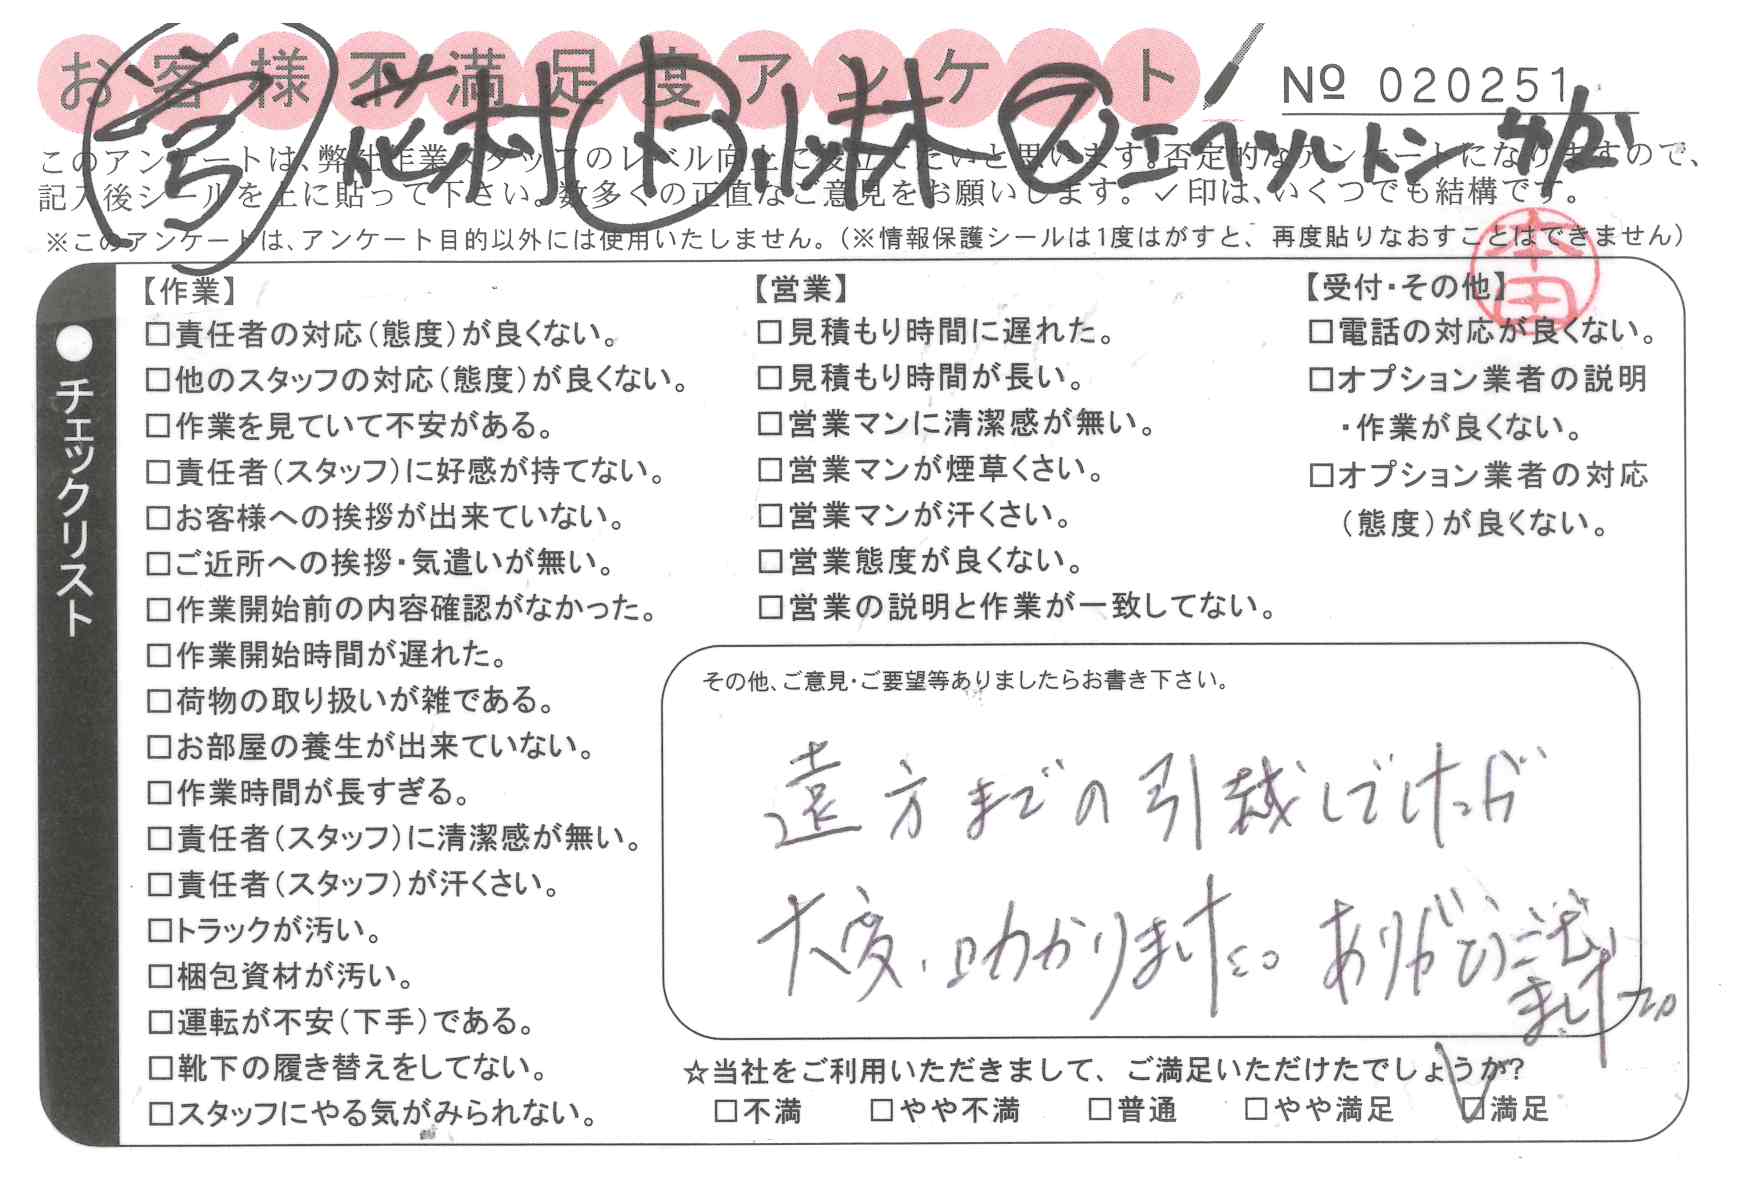 お客様不満足度アンケート
№ 020251
営 花村 ト 小林 ア エベソルトン
このアンケートは、弊社作業スタッフのレベル向上で役立てたいと思います。否定的なアンケートになりますので、
記入後シールを上に貼って下さい。数多くの正直なご意見をお願いします。✓印は、いくつでも結構です。
※このアンケートは、アンケート目的以外には使用いたしません。(※情報保護シールは1度はがすと、再度貼りなおすことはできません)
本田
●チェックリスト
【作業】
□責任者の対応(態度)が良くない。
□他のスタッフの対応(態度)が良くない。
□作業を見ていて不安がある。
□責任者(スタッフ)に好感が持てない。
□お客様への挨拶が出来ていない。
□ご近所への挨拶・気遣いが無い。
□作業開始前の内容確認がなかった。
□作業開始時間が遅れた。
□荷物の取り扱いが雑である。
□お部屋の養生が出来ていない。
□作業時間が長すぎる。
□責任者(スタッフ)に清潔感が無い。
□責任者(スタッフ)が汗くさい。
□トラックが汚い。
□梱包資材が汚い。
□運転が不安(下手)である。
□靴下の履き替えをしてない。
□スタッフにやる気がみられない。
【営業】
□見積もり時間に遅れた。
□見積もり時間が長い。
□営業マンに清潔感が無い。
□営業マンが煙草くさい。
□営業マンが汗くさい。
□営業態度が良くない。
□営業の説明と作業が一致してない。
【受付・その他】
□電話の対応が良くない。
□オプション業者の説明
・作業が良くない。
□オプション業者の対応
(態度)が良くない。
その他、ご意見・ご要望等ありましたらお書き下さい。
遠方までの引越しでしたが
大変、助かりました。ありがとうござい
ました。
☆当社をご利用いただきまして、ご満足いただけたでしょうか?
□不満 □やや不満 □普通 □やや満足 ☑満足